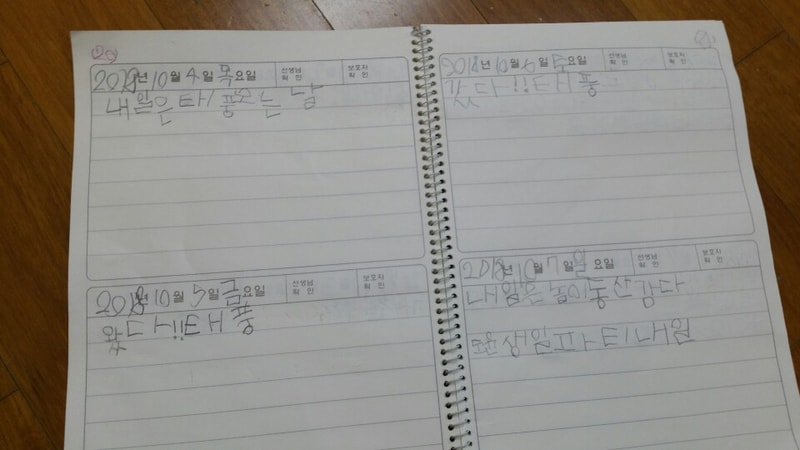 20
2018년 10월 4일 목요일 선생님 확인 보호자 확인
내일은 태풍오는 날
2018년 10월 5일 금요일 선생님 확인 보호자 확인
왔다!!태풍
2018년 10월 6일 토요일 선생님 확인 보호자 확인
갔다!!태풍
2018년 10월 7일 일요일 선생님 확인 보호자 확인
내일은 놀이동산감다
생일파티내일